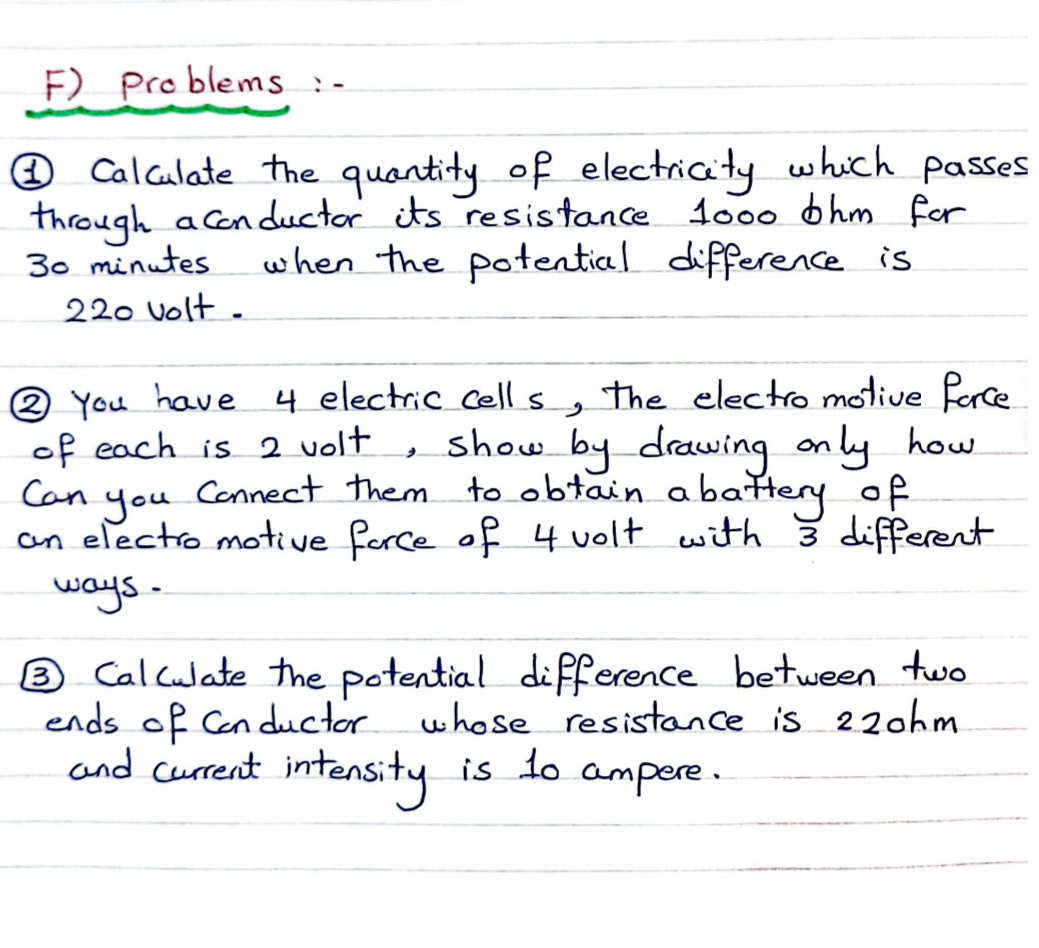 F) Problems :-
① Calculate the quantity of electricity which passes
through a conductor its resistance 1000 ohm for
30 minutes when the potential difference is
220 volt.
② You have 4 electric cells, The electro motive force
of each is 2 volt, show by drawing only how
Can you Connect them to obtain a battery of
an electro motive force of 4 volt with 3 different
ways.
③ Calculate the potential difference between two
ends of Conductor whose resistance is 22ohm
and current intensity is 10 ampere.